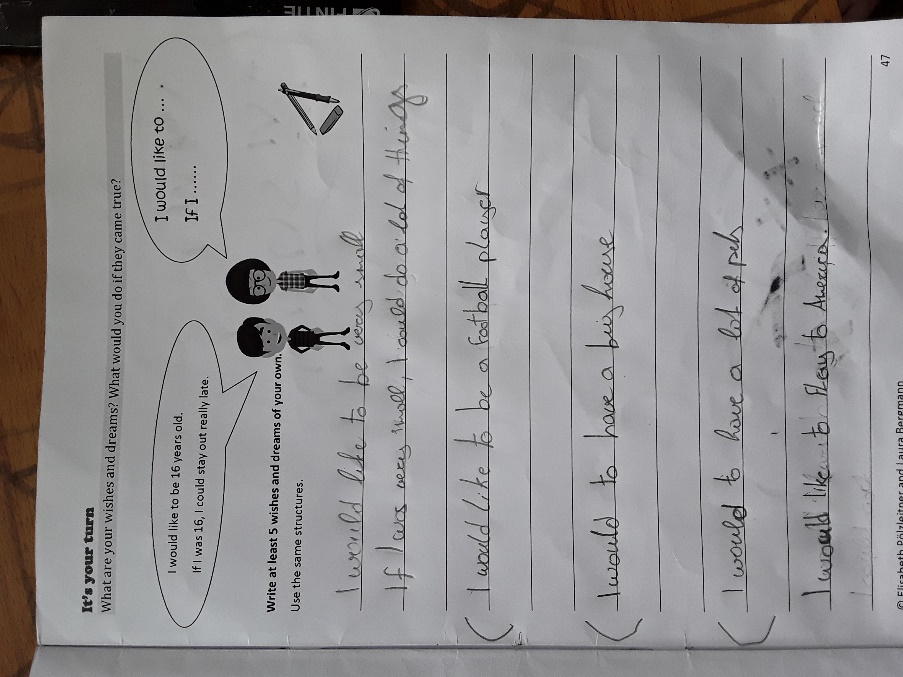 It's your turn
What are your wishes and dreams? What would you do if they came true?
I would like to be 16 years old.
If I was 16, I could stay out really late.
I would like to ... .
If I ......
Write at least 5 wishes and dreams of your own.
Use the same structures.
I would like to be very small
If I was very small, I could do a lot of things
I would like to be a football player
I would to have a big house
I would to have a lot of pets
I would like to to America.
47
© Elisabeth Pölzleitner and Laura Bergmann